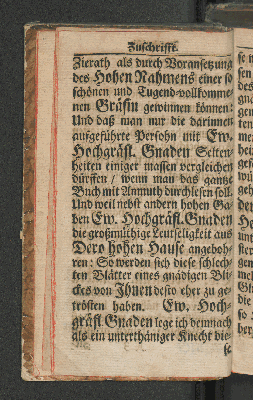 Zuschrifft.
Zierath als durch Voransetzung
des Hohen Nahmens einer so
schönen und Tugend-vollkomme-
nen Gräfin gewinnen können:
Und daß man nur die darinnen
aufgeführte Persohn mit Ew.
Hochgräfl. Gnaden Selten-
heiten einiger massen vergleichen
dürffen / wenn man das gantze
Buch mit Anmuth durchlesen soll.
Und weil nebst andern hohen Ga-
ben Ew. Hochgräfl. Gnaden
die großmüthige Leutseligkeit aus
Dero hohen Hause angebohr-
ren: So werden sich diese schlech-
ten Blätter eines gnädigen Bli-
ckes von Ihnen desto eher zu ge-
trösten haben. Ew. Hoch-
gräfl. Gnaden lege ich demnach
als ein unterthäniger Knecht die-